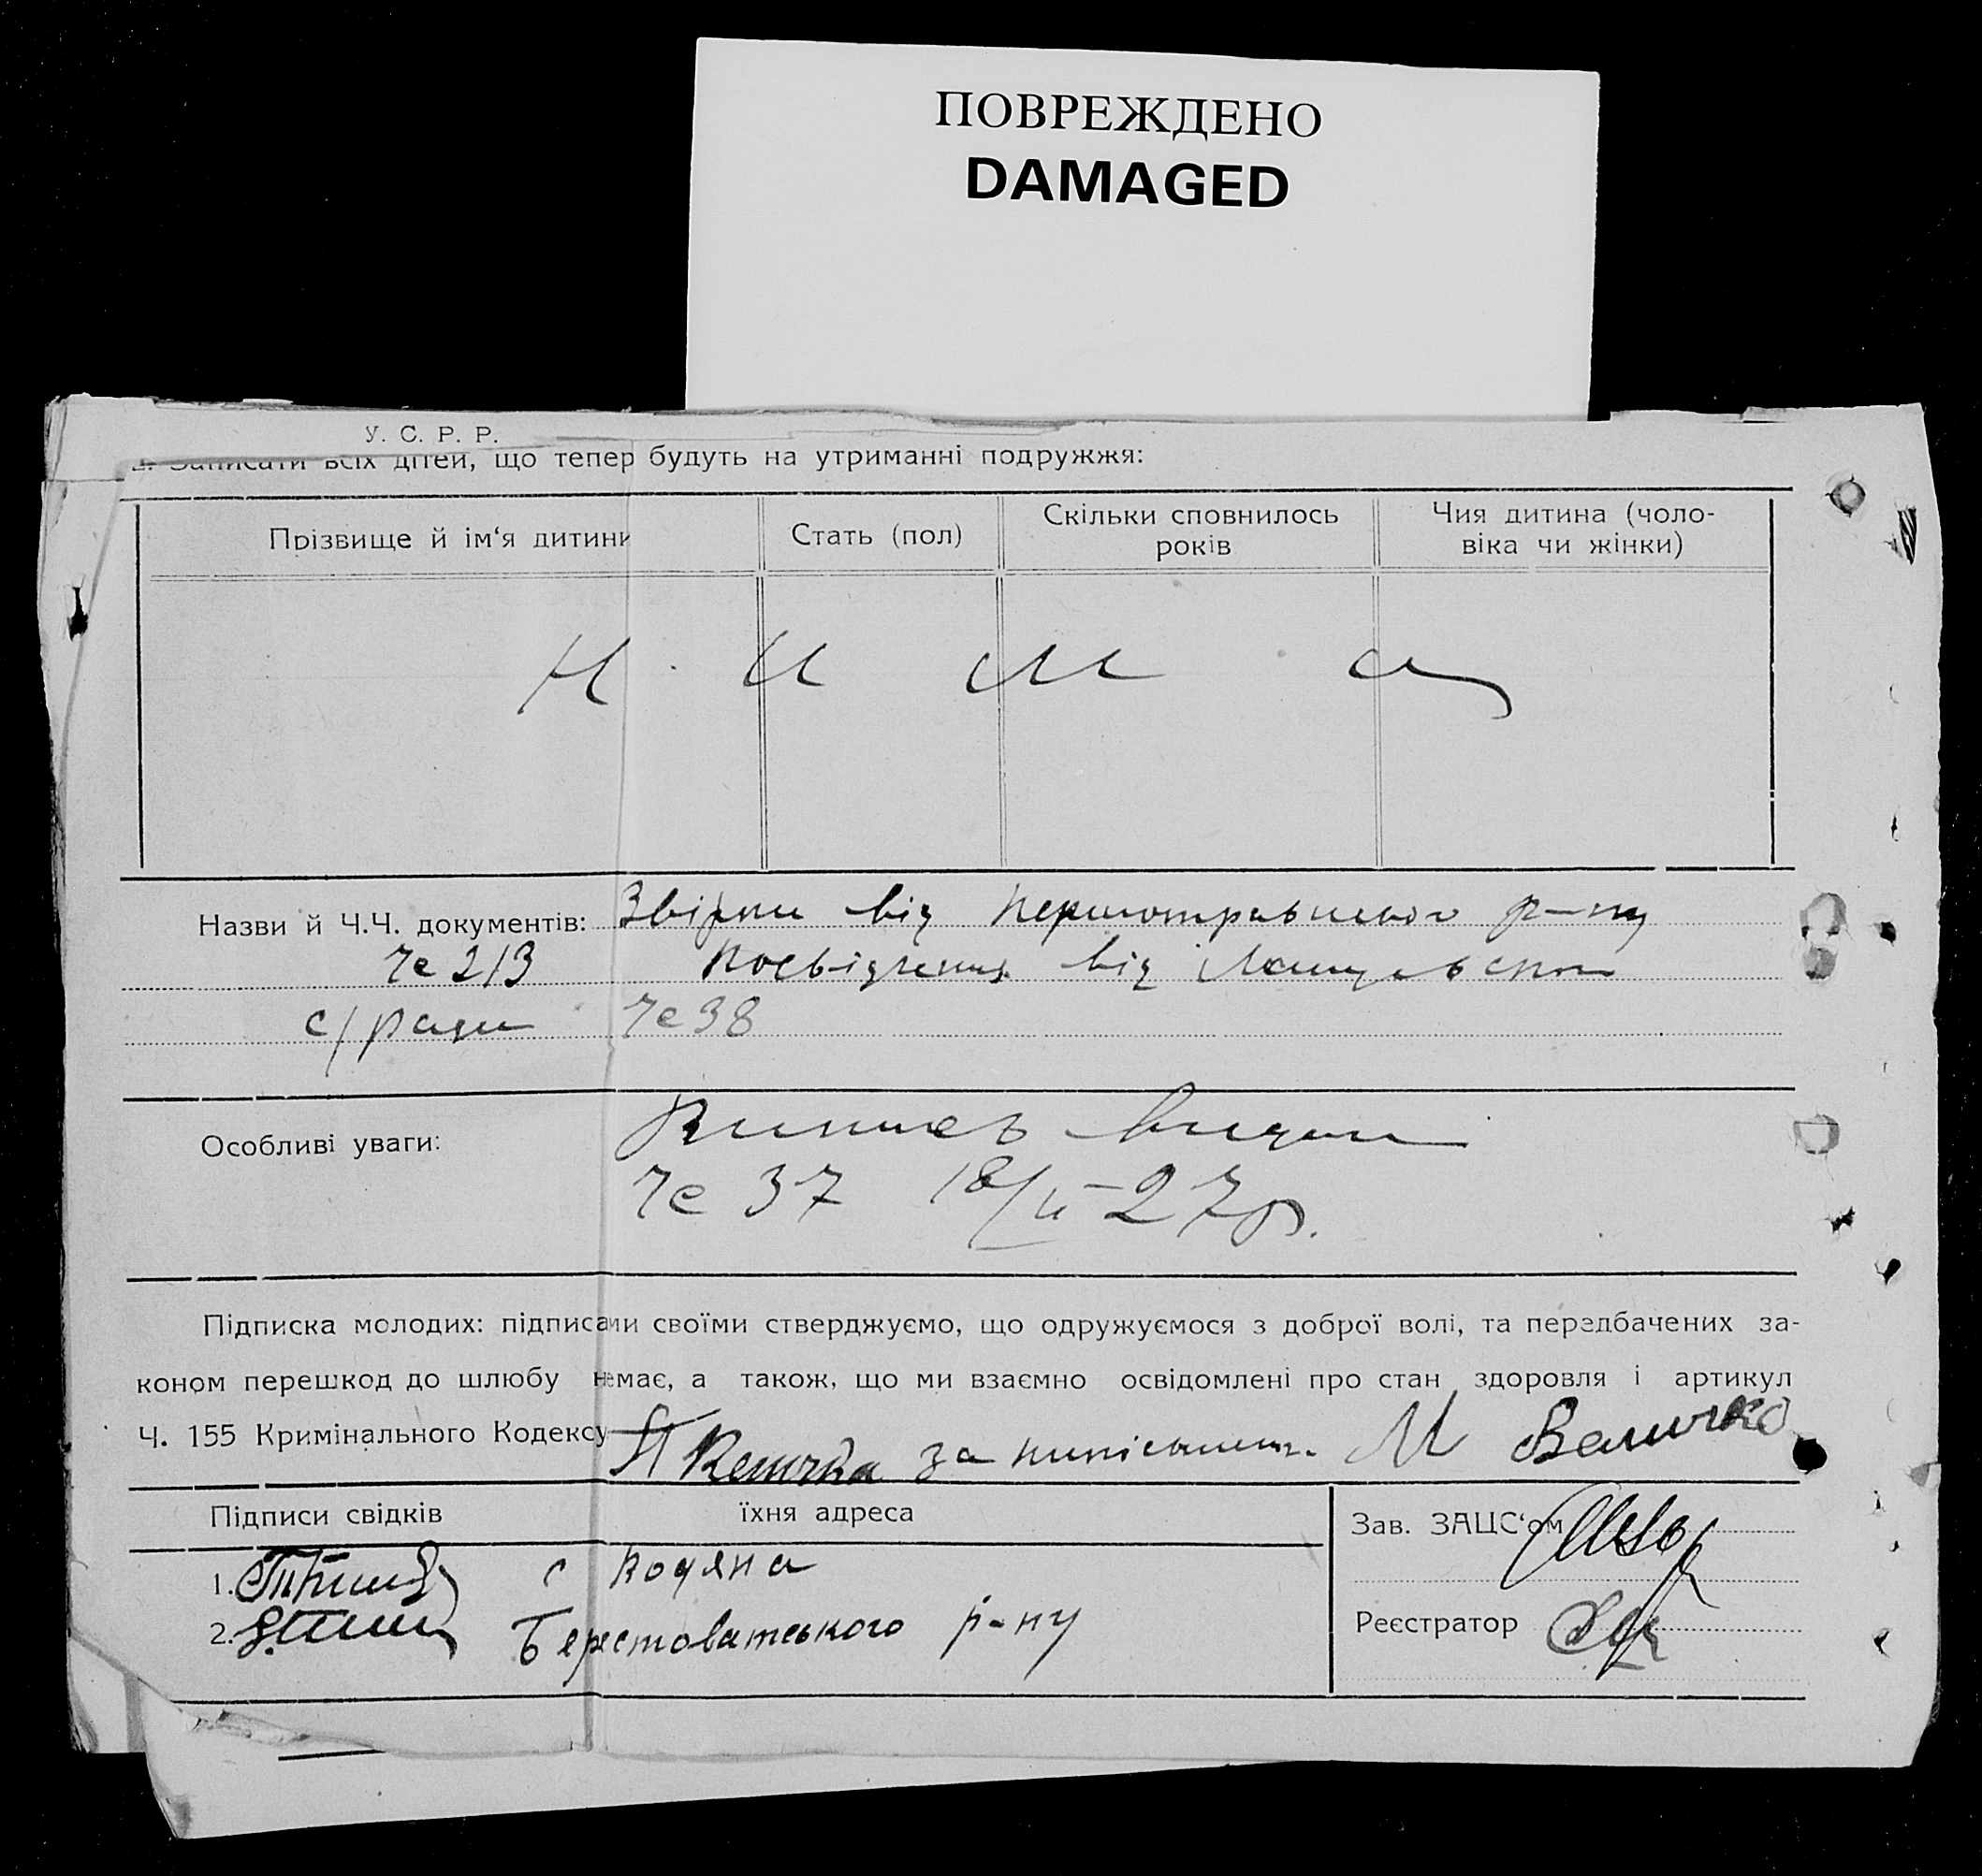 ПОВРЕЖДЕНО
DAMAGED
У. С. Р. Р.
Записати всіх дітей, що тепер будуть на утриманні подружжя:
Прізвище й ім‘я дитини
Стать (пол)
Скільки сповнилось
років
Чия дитина (чоло-
віка чи жінки)
Назви й Ч.Ч. документів: від р-ну
Че 213 Посвідчення від
с/ради Че 38
Особливі уваги: Виписъ видан
Че 37 18/II-27р.
Підписка молодих: підписами своїми стверджуємо, що одружуємося з доброї волі, та передбачених за-
коном перешкод до шлюбу немає, а також, що ми взаємно освідомлені про стан здоровля і артикул
Ч. 155 Кримінального Кодексу за М Величко
Підписи свідків
їхня адреса
Зав. ЗАЦС‘ом
1. с Водяна
2. Берестоватського р-ну
Реєстратор